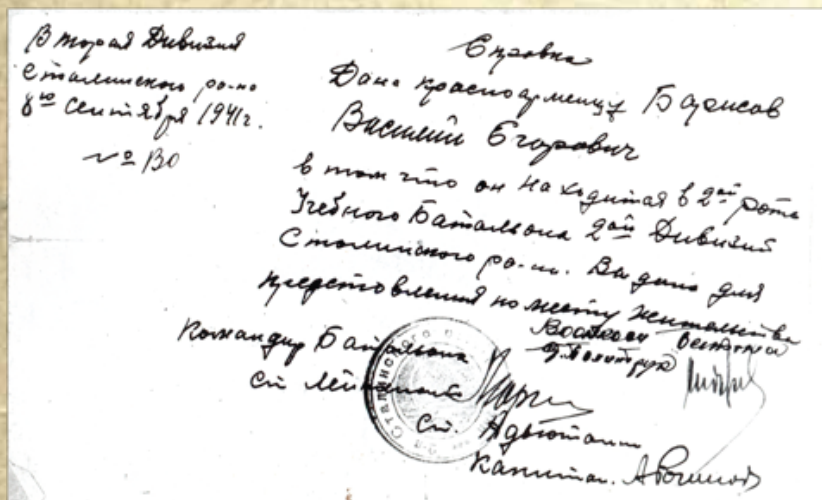 Вторая Дивизия
Сталинского ра-на
8го Сентября 1941г.
№ 130
Справка
Дана красноармейцу Борисов
Василий Егорович
в том что он находится в 2ой рота
Учебного Батальона 2ой Дивизий
Сталинского ра-на. Выдана для
представления по месту жительства
Командир Батальона
Ст Лейтенант
Ст. Адъютант
Капитан.